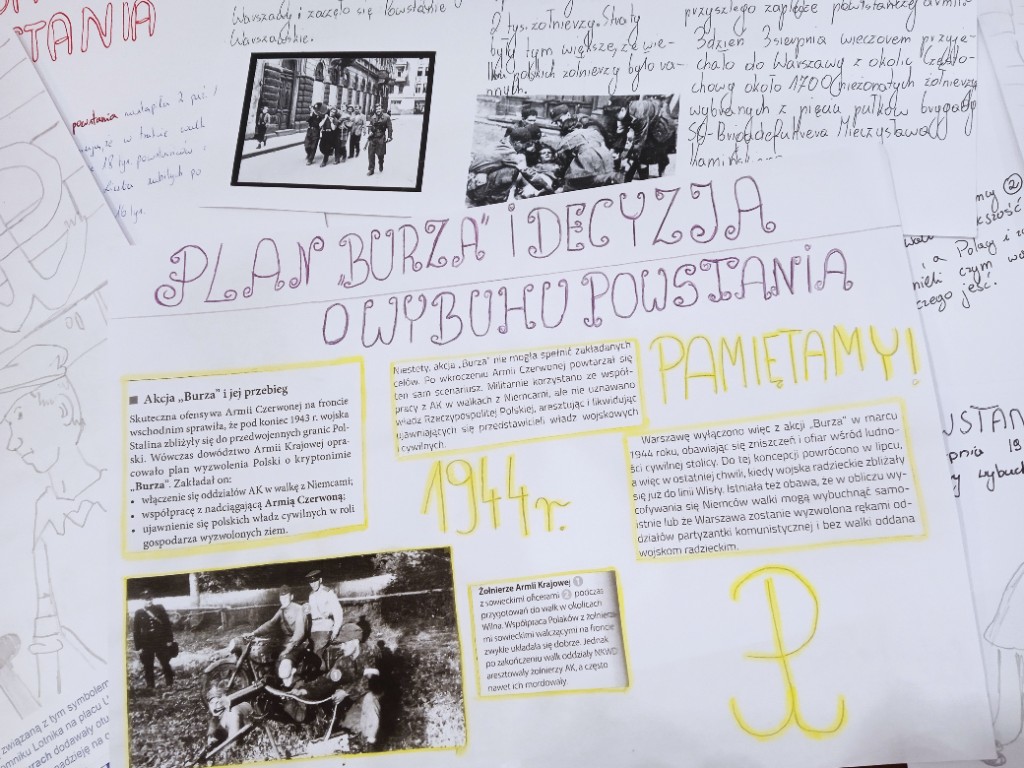 TANIA
Warszawy i zaczęło się Powstanie
Warszawskie.
2 tys. żołnierzy. Straty
były tym większe, że wie-
lu polskich żołnierzy było ran-
nych.
przyszłego zaplecze powstańczej armii.
3 dzień 3 sierpnia wieczorem przyje-
chało do Warszawy z okolic Często-
chowy około 1700 nieżonatych żołnierzy
wybranych z pięciu pułków brygady
powstania
w trakcie walk
18 tys. powstańców
PLAN „BURZA" I DECYZJA
O WYBUHU POWSTANIA
PAMIĘTAMY!
■ Akcja „Burza” i jej przebieg
Skuteczna ofensywa Armii Czerwonej na froncie
wschodnim sprawiła, że pod koniec 1943 r. wojska
Stalina zbliżyły się do przedwojennych granic Pol-
ski. Wówczas dowództwo Armii Krajowej opra-
cowało plan wyzwolenia Polski o kryptonimie
„Burza”. Zakładał on:
• włączenie się oddziałów AK w walkę z Niemcami;
• współpracę z nadciągającą Armią Czerwoną;
• ujawnienie się polskich władz cywilnych w roli
gospodarza wyzwolonych ziem.
Niestety, akcja „Burza” nie mogła spełnić zakładanych
celów. Po wkroczeniu Armii Czerwonej powtarzał się
ten sam scenariusz. Militarnie korzystano ze współ-
pracy z AK w walkach z Niemcami, ale nie uznawano
władz Rzeczypospolitej Polskiej, aresztując i likwidując
ujawniających się przedstawicieli władz wojskowych
i cywilnych.
1944 r.
Warszawę wyłączono więc z akcji „Burza” w marcu
1944 roku, obawiając się zniszczeń i ofiar wśród ludno-
ści cywilnej stolicy. Do tej koncepcji powrócono w lipcu,
a więc w ostatniej chwili, kiedy wojska radzieckie zbliżały
się już do linii Wisły. Istniała też obawa, że w obliczu wy-
cofywania się Niemców walki mogą wybuchnąć samo-
istnie lub że Warszawa zostanie wyzwolona rękami od-
działów partyzantki komunistycznej i bez walki oddana
wojskom radzieckim.
Żołnierze Armii Krajowej 1
z sowieckimi oficerami 2 podczas
przygotowań do walk w okolicach
Wilna. Współpraca Polaków z żołnierza-
mi sowieckimi walczącymi na froncie
zwykle układała się dobrze. Jednak
po zakończeniu walk oddziały NKWD
aresztowały żołnierzy AK, a często
nawet ich mordowały.
2
, a Polacy i
czym
jeść.
związaną z tym symbolem
Lotnika na placu
dodawały
nadzieję na